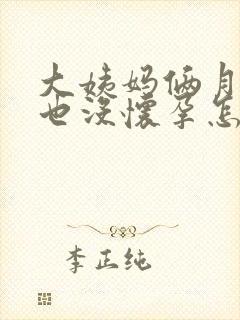 大姨妈俩月
也没怀孕怎
李正纯